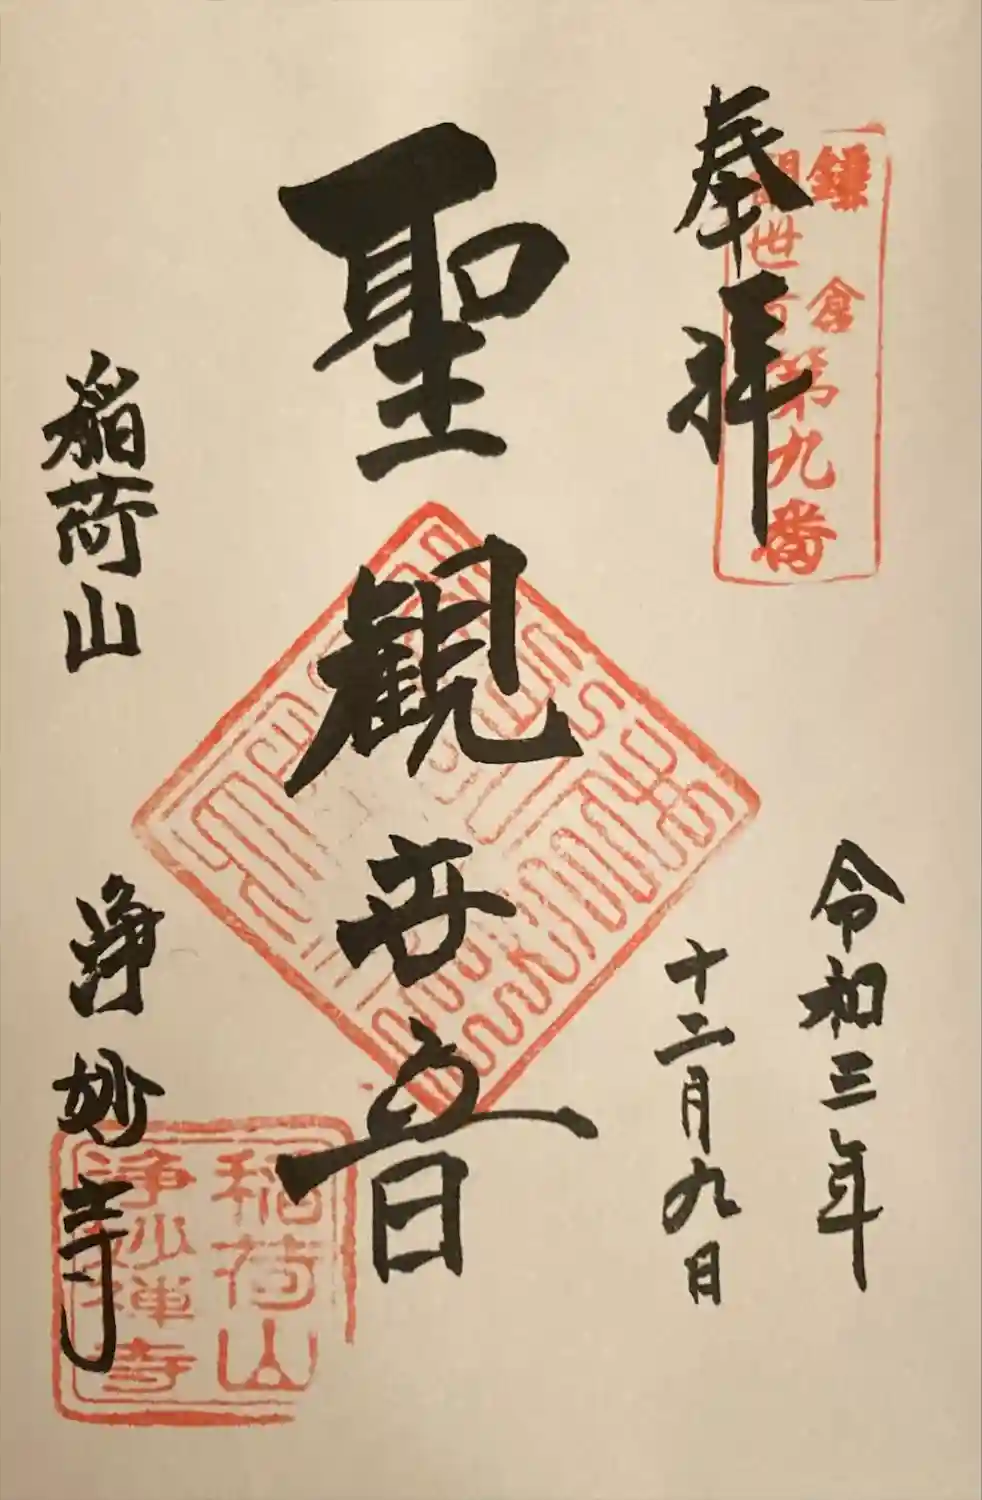 奉拝
鎌倉
観世音第九番
令和三年
十二月九日
聖観世音
稲荷山
浄妙寺
稲荷山
浄妙禅寺